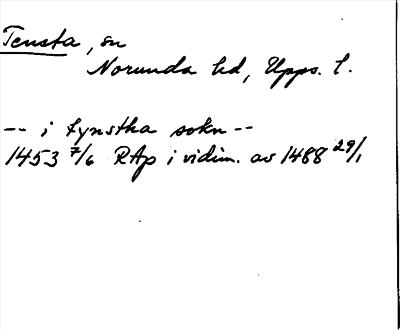 Tensta, sn
Norunda hd, Upps. l.
-- i tynstha sokn --
1453 7/6 RAp i vidim. av 1488 29/1